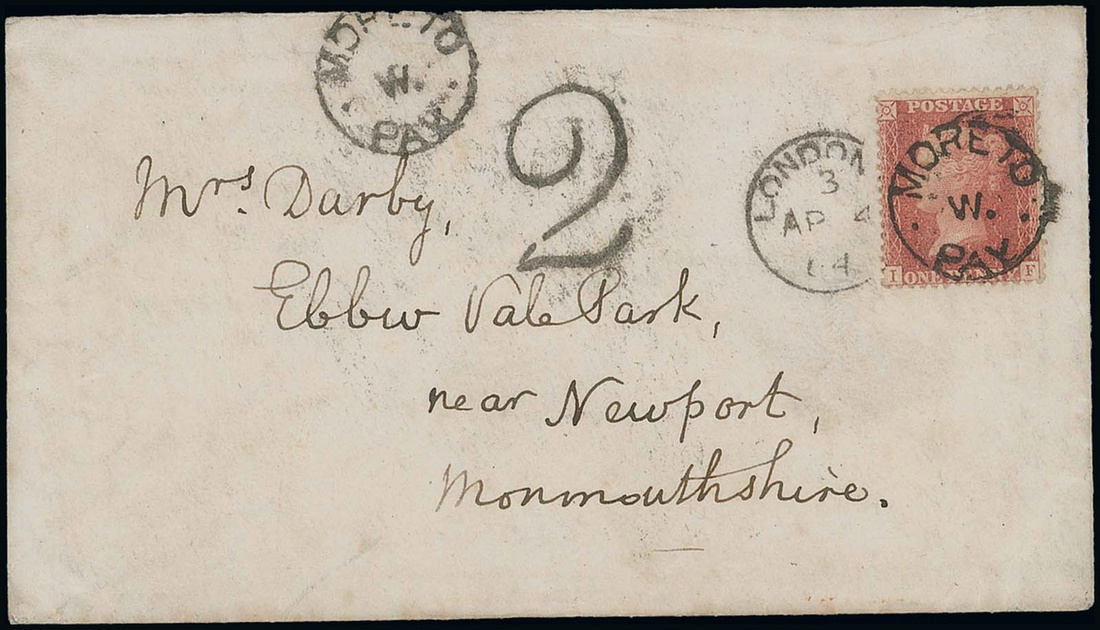 MORE TO
W.
PAY
2
Mrs. Darby,
Ebbw Vale Park,
near Newport,
Monmouthshire.
LONDON
3
AP 4
64
POSTAGE
MORE TO
W.
PAY
I ONE PENNY F